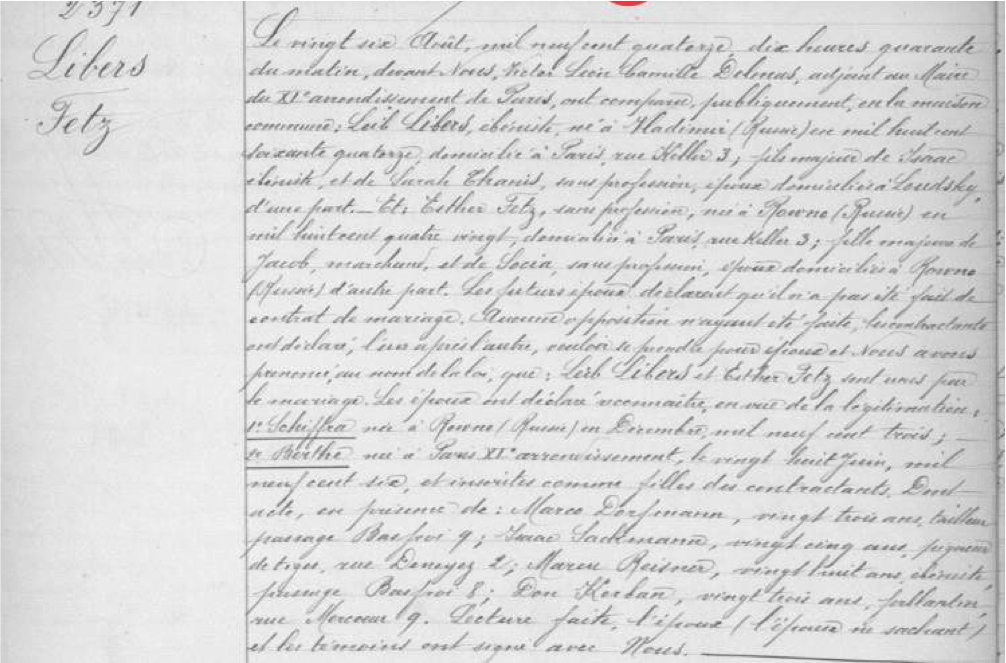 2371
Libers
Fetz
Le vingt six Août, mil neuf cent quatorze, dix heures quarante
du matin, devant Nous, Victor Léon Camille Delmas, adjoint au Maire
du XIe arrondissement de Paris, ont comparu, publiquement, en la maison
commune: Leib Libers, ébéniste, né à Vladimir (Russie) en mil huit cent
soixante quatorze, domicilié à Paris, rue Keller 3; fils majeur de Isaac
ébéniste, et de Sarah Thranis, sans profession, époux domiciliés à Loudsky,
d'une part. _ Et: Esther Fetz, sans profession, née à Rowno (Russie) en
mil huit cent quatre vingt, domiciliée à Paris, rue Keller 3; fille majeure de
Jacob, marchand, et de Socia, sans profession, époux domiciliés à Rowno
(Russie) d'autre part. Les futurs époux déclarent qu'il n'a pas été fait de
contrat de mariage. Aucune opposition n'ayant été faite, les contractants
ont déclaré, l'un après l'autre, vouloir se prendre pour époux et Nous avons
prononcé, au nom de la loi, que: Leib Libers et Esther Fetz sont unis par
le mariage. Les époux ont déclaré reconnaître, en vue de la légitimation:
1° Schiffra née à Rowno (Russie) en Décembre, mil neuf cent trois; _
2° Berthe née à Paris XIe arrondissement, le vingt huit Juin, mil
neuf cent six, et inscrites comme filles des contractants. Dont
acte, en présence de: Marco Dorfmann, vingt trois ans, tailleur
passage Basfroi 9; Isaac Sackmann, vingt cinq ans, piqueur
de tiges, rue Denoyez 2; Marcu Reisner, vingt huit ans, ébéniste,
passage Basfroi 8; Don Korban, vingt trois ans, ferblantier,
rue Mercoeur 9. Lecture faite, l'époux (l'épouse ne sachant)
et les témoins ont signé avec Nous. _